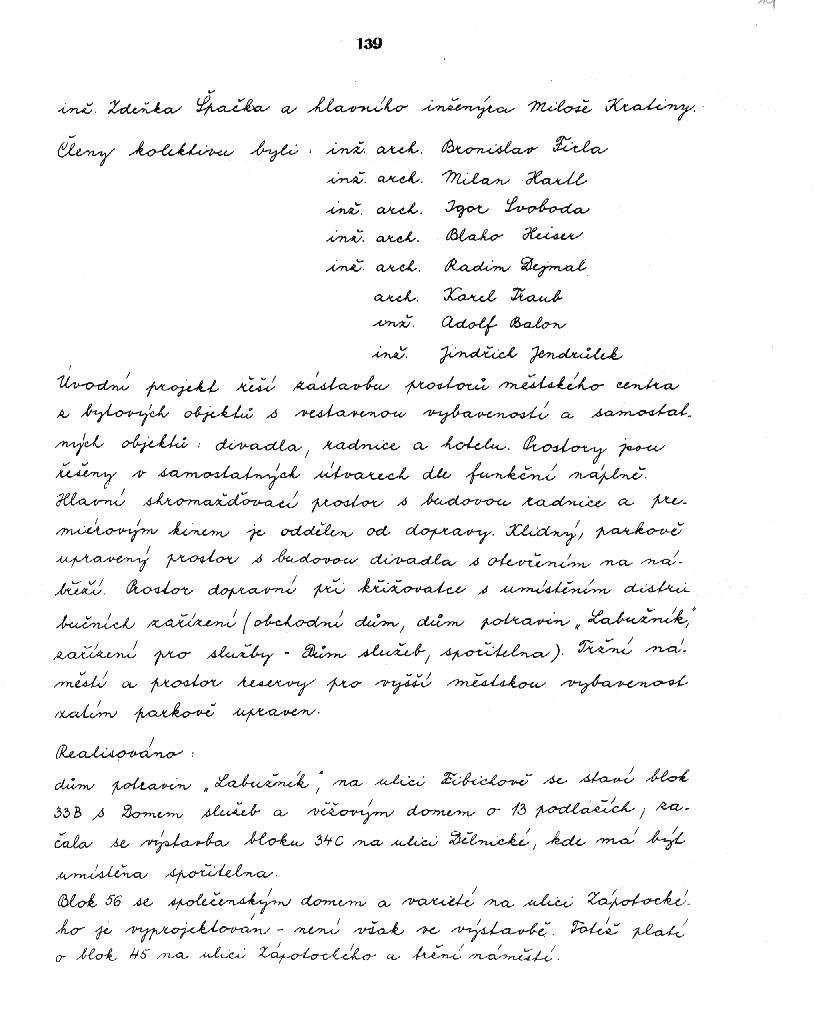 139
inž. Zdeňka Špačka a hlavního inženýra Miloše Kratiny.
Členy kolektivu byli : inž. arch. Bronislav Firla
inž. arch. Milan Hartl
inž. arch. Igor Svoboda
inž. arch. Blaho Heiser
inž. arch. Radim Dejmal
arch. Karel Traub
inž. Adolf Balon
inž. Jindřich Jendrůlek
Úvodní projekt řeší zástavbu prostorů městského centra
z bytových objektů s vestavenou vybaveností a samostat-
ných objektů : divadla, radnice a hotelu. Prostory jsou
řešeny v samostatných útvarech dle funkční náplně.
Hlavní shromažďovací prostor s budovou radnice a pre-
miérovým kinem je oddělen od dopravy. Klidný, parkově
upravený prostor s budovou divadla s otevřením na ná-
břeží. Prostor dopravní při křižovatce s umístěním distri
bučních zařízení (obchodní dům, dům potravin „Labužník,"
zařízení pro služby - Dům služeb, spořitelna). Tržní ná-
městí a prostor reservy pro vyšší městskou vybavenost
zatím parkově upraven.
Realisováno :
dům potravin „Labužník", na ulici Fibichově se staví blok
33B s Domem služeb a věžovým domem o 13 podlažích, za-
čala se výstavba bloku 34C na ulici Dělnické, kde má být
umístěna spořitelna.
Blok 56 se společenským domem a varieté na ulici Zápotocké-
ho je vyprojektován - není však ve výstavbě. Totéž platí
o blok 45 na ulici Zápotockého a tržní náměstí.